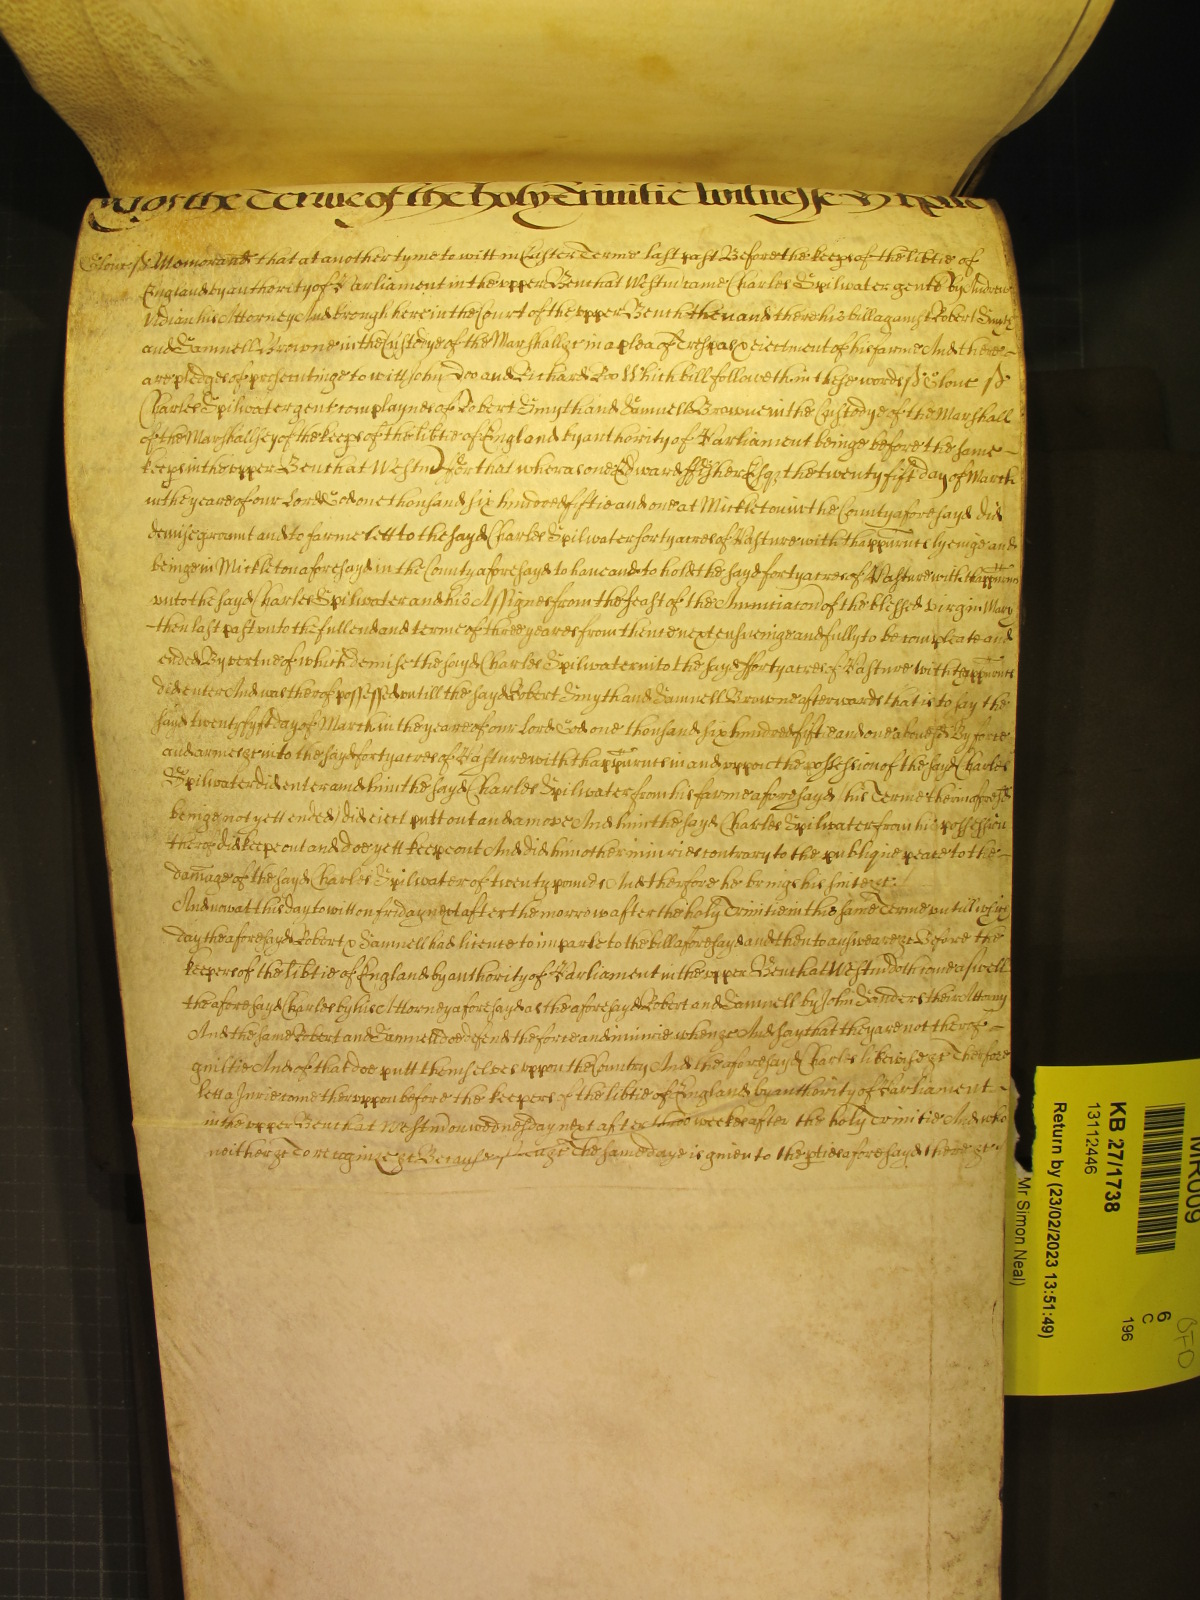 of the Terme of the holy Trinitie Witnesse
Glouc ss Memorand that at another tyme to witt in Easter Terme last past Before the keeps of the libtie of
England by authority of Parliament in the upper Bench at Westm came Charles Spilwater gent by Andrew
Vdian his Attorney And brough here in the Court of the upper Bench then and there his bill against Robert Smyth
and Samuell Browne in the Custodye of the Marshall &c in a plea of Trespas & eiectment of his farme And there
are pledges of prosecutinge to witt John Doo and Richard Roo Which bill followeth in these words ss Glouc ss
Charles Spilwater gent complaynes of Robert Smyth and Samuell Browne in the Custodye of the Marshall
of the Marshallsey of the keeps of the libtie of England by authority of Parliament beinge before the same
keeps in the upper Bench at Westm For that whereas one Edward ffisher Esqr the twenty fift day of March
in the yeare of our Lord God one thousand six hundred fiftie and one at Mickleton in the County aforesayd did
demise graunt and to farme lett to the sayd Charles Spilwater forty acres of Pasture with thappurtnts lyeinge and
beinge in Mickleton aforesayd in the County aforesayd to haue and to hold the sayd forty acres of Pasture with thappurtnts
vnto the sayd Charles Spilwater and his Assignes from the feast of the Annuntiacon of the blessed virgin Mary
then last past vnto the full end and terme of three yeares from thence next ensueinge and fully to be compleate and
ended By vertue of which demise the sayd Charles Spilwater into the sayd forty acres of Pasture with thappurtnts
did enter And was therof possessed vntill the sayd Robert Smyth and Samuell Browne afterwards that is to say the
sayd twenty fyft day of March in the yeare of our Lord God one thousand six hundred fiftie and one abouesd By force
and armes &c into the sayd forty acres of Pasture with thappurtnts in and vppon the possession of the sayd Charles
Spilwater did enter and him the sayd Charles Spilwater from his farme aforesayd (his Terme therin aforesd
beinge not yett ended) did eiect putt out and amove And him the sayd Charles Spilwater from his possession
therof did keepe out and doe yett keepe out And did him other iniuries contrary to the publique peace to the
damage of the sayd Charles Spilwater of twenty pounds And therfore he brings his suite &c
And now at this day to witt on friday next after the morrow after the holy Trinitie in this same Terme vntill which
day the aforesayd Robert & Samuell had licence to imparle to the bill aforesayd and then to answeare &c Before the
keepers of the libtie of England by authority of Parliament in the vpper Bench at Westm doth come aswell
the aforesayd Charles by his Attorney aforesayd as the aforesayd Robert and Samuell by John Sanders their Attorny
And the same Robert and Samuell doe defend the force and iniurie when &c And say that they are not therof
guiltie And of that doe putt themselves vppon the Country And the aforesayd Charles likewise &c Therfore
lett a Jurie come thervppon before the keepers of the libtie of England by authority of Parliament
in the vpper Bench at Westm on wednesday next after three weekes after the holy Trinitie And who
neither &c To recognize &c Because &c The same daye is giuen to the pties aforesayd there &c
MR009
KB 27/1738
13112446
Return by (23/02/2023 13:51:49)
Mr Simon Neal)
6
C
196